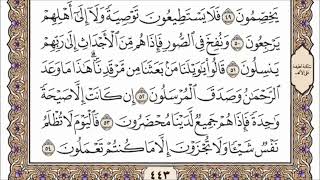 يَخِصِّمُونَ ﴿٤٩﴾ فَلَا يَسْتَطِيعُونَ تَوْصِيَةً وَلَآ إِلَىٰٓ أَهْلِهِمْ
يَرْجِعُونَ ﴿٥٠﴾ وَنُفِخَ فِى ٱلصُّورِ فَإِذَا هُم مِّنَ ٱلْأَجْدَاثِ إِلَىٰ رَبِّهِمْ
يَنسِلُونَ ﴿٥١﴾ قَالُوا۟ يَٰوَيْلَنَا مَنۢ بَعَثَنَا مِن مَّرْقَدِنَا ۜ هَٰذَا مَا وَعَدَ
ٱلرَّحْمَٰنُ وَصَدَقَ ٱلْمُرْسَلُونَ ﴿٥٢﴾ إِن كَانَتْ إِلَّا صَيْحَةً
وَٰحِدَةً فَإِذَا هُمْ جَمِيعٌ لَّدَيْنَا مُحْضَرُونَ ﴿٥٣﴾ فَٱلْيَوْمَ لَا تُظْلَمُ
نَفْسٌ شَيْـًٔا وَلَا تُجْزَوْنَ إِلَّا مَا كُنتُمْ تَعْمَلُونَ ﴿٥٤﴾
٤٤٣